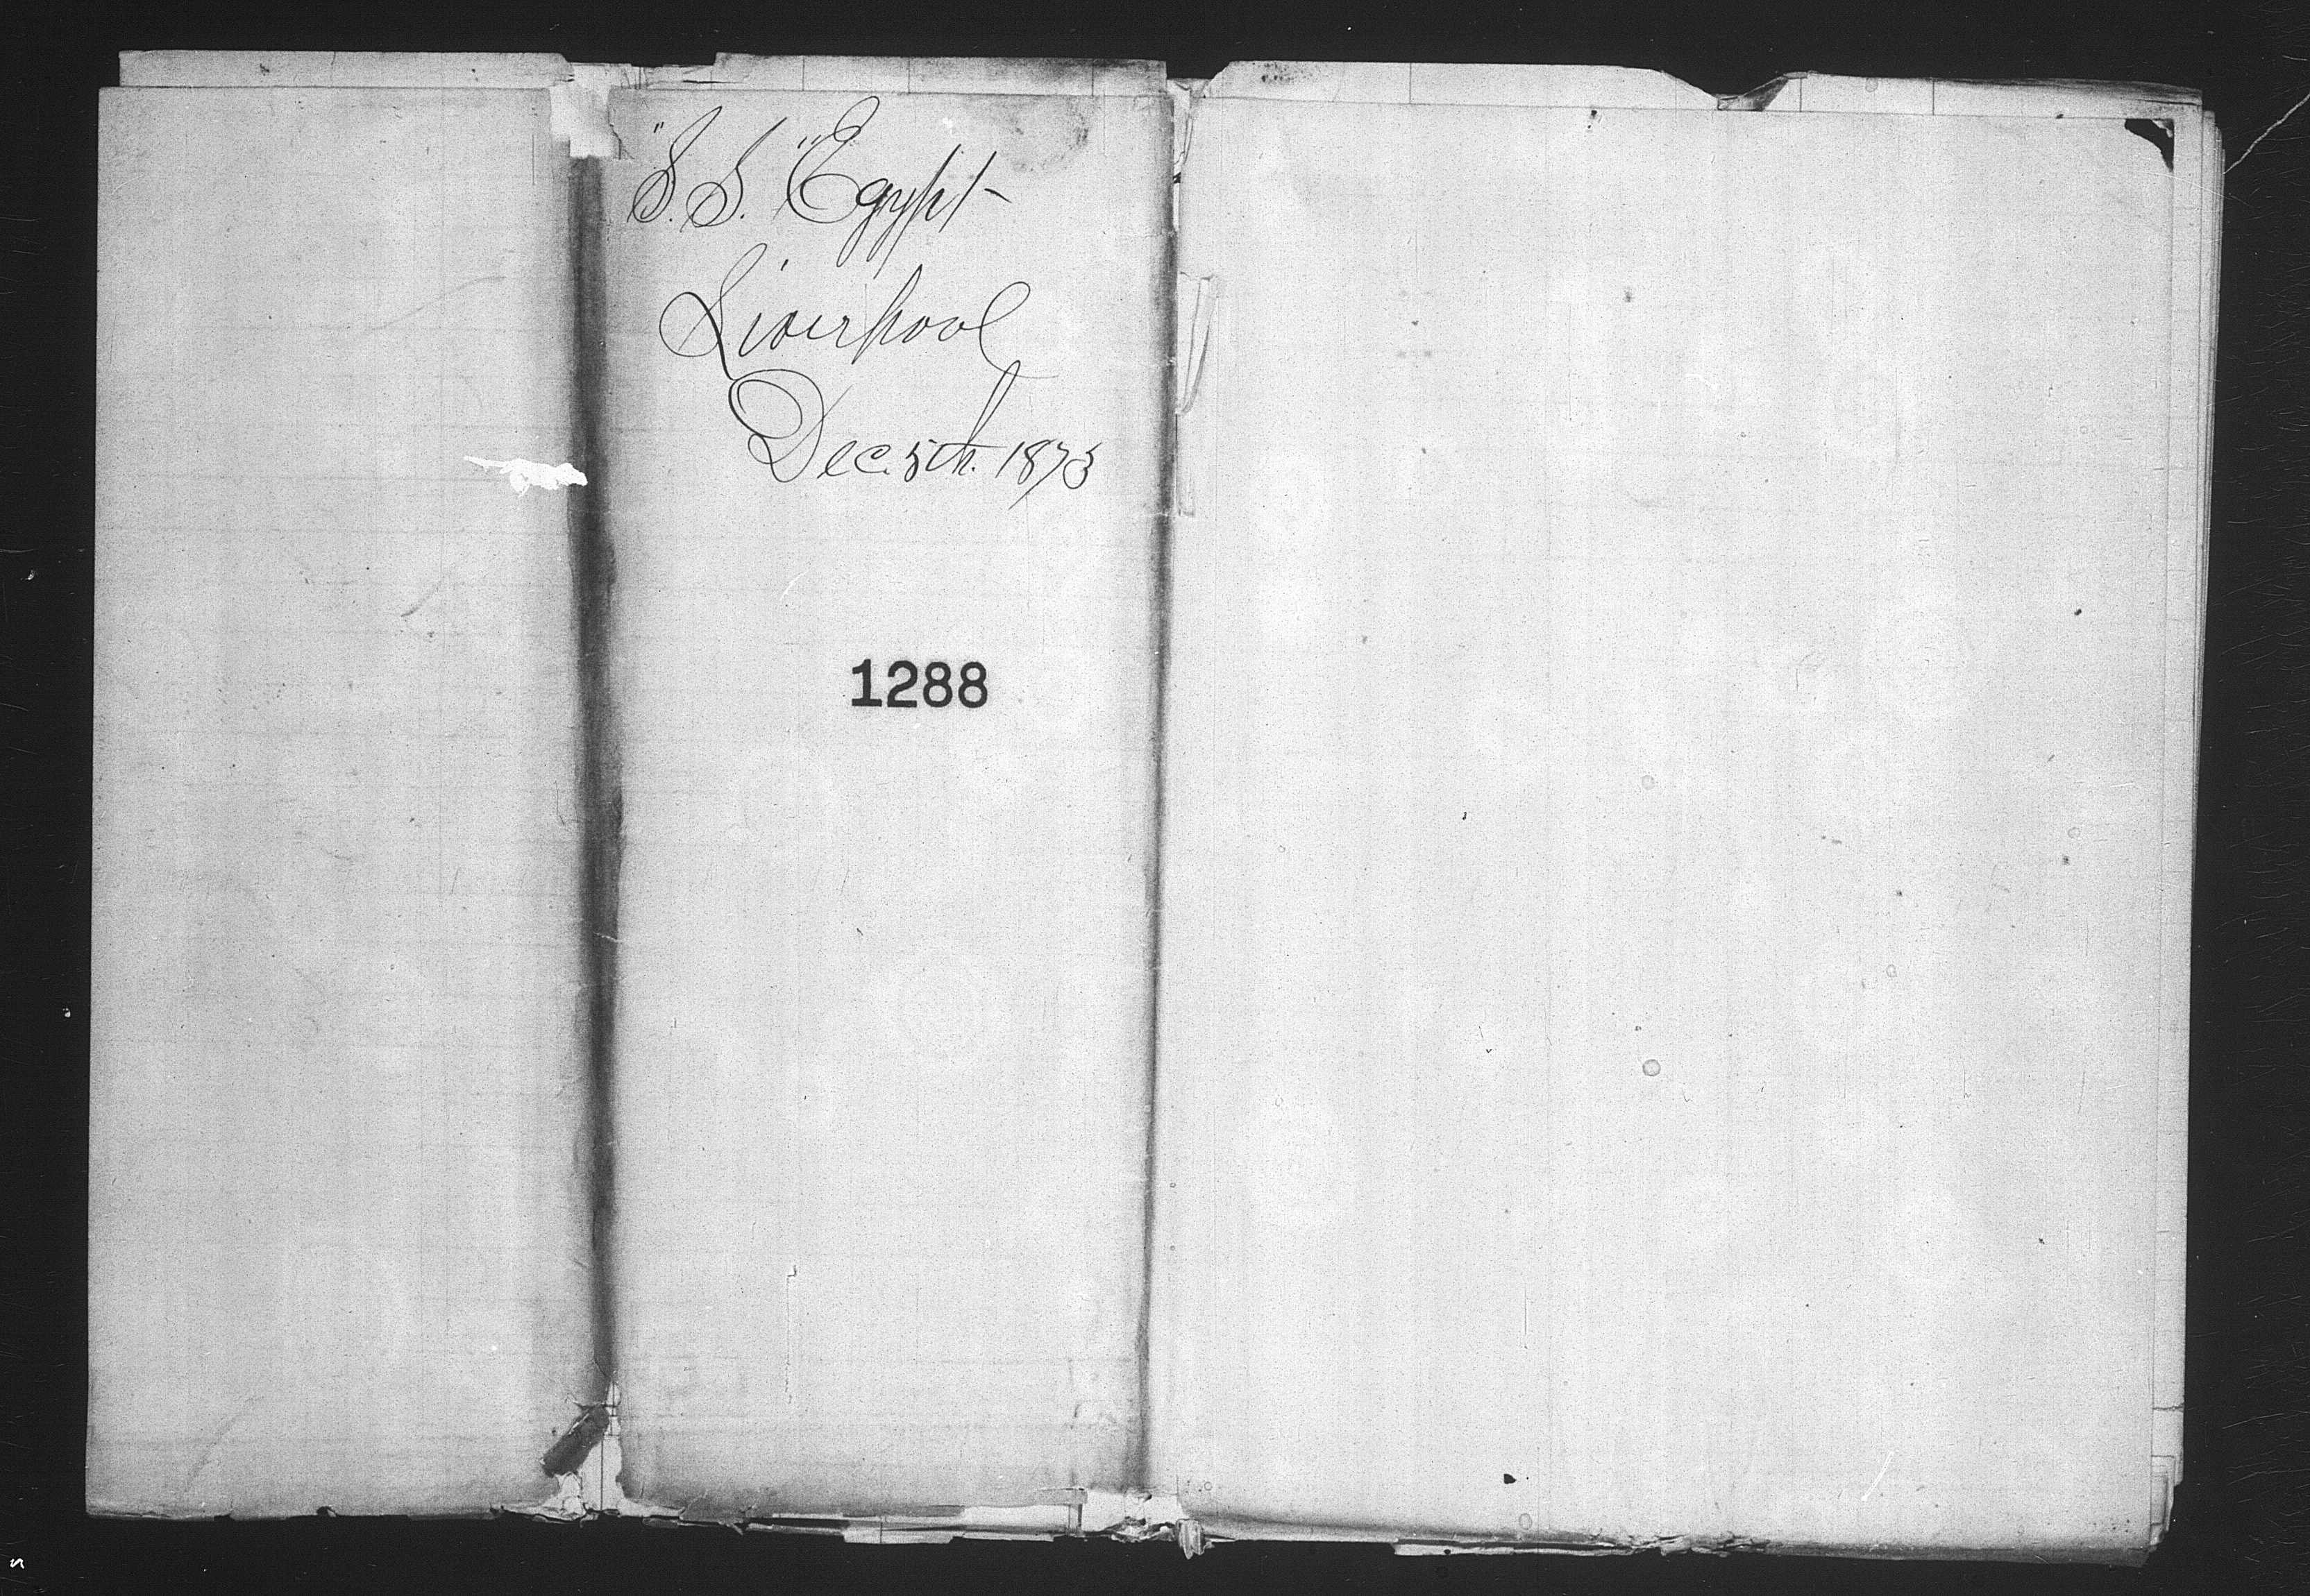 "S.S. "Egypt
Liverpool
Dec. 5th. 1873
1288